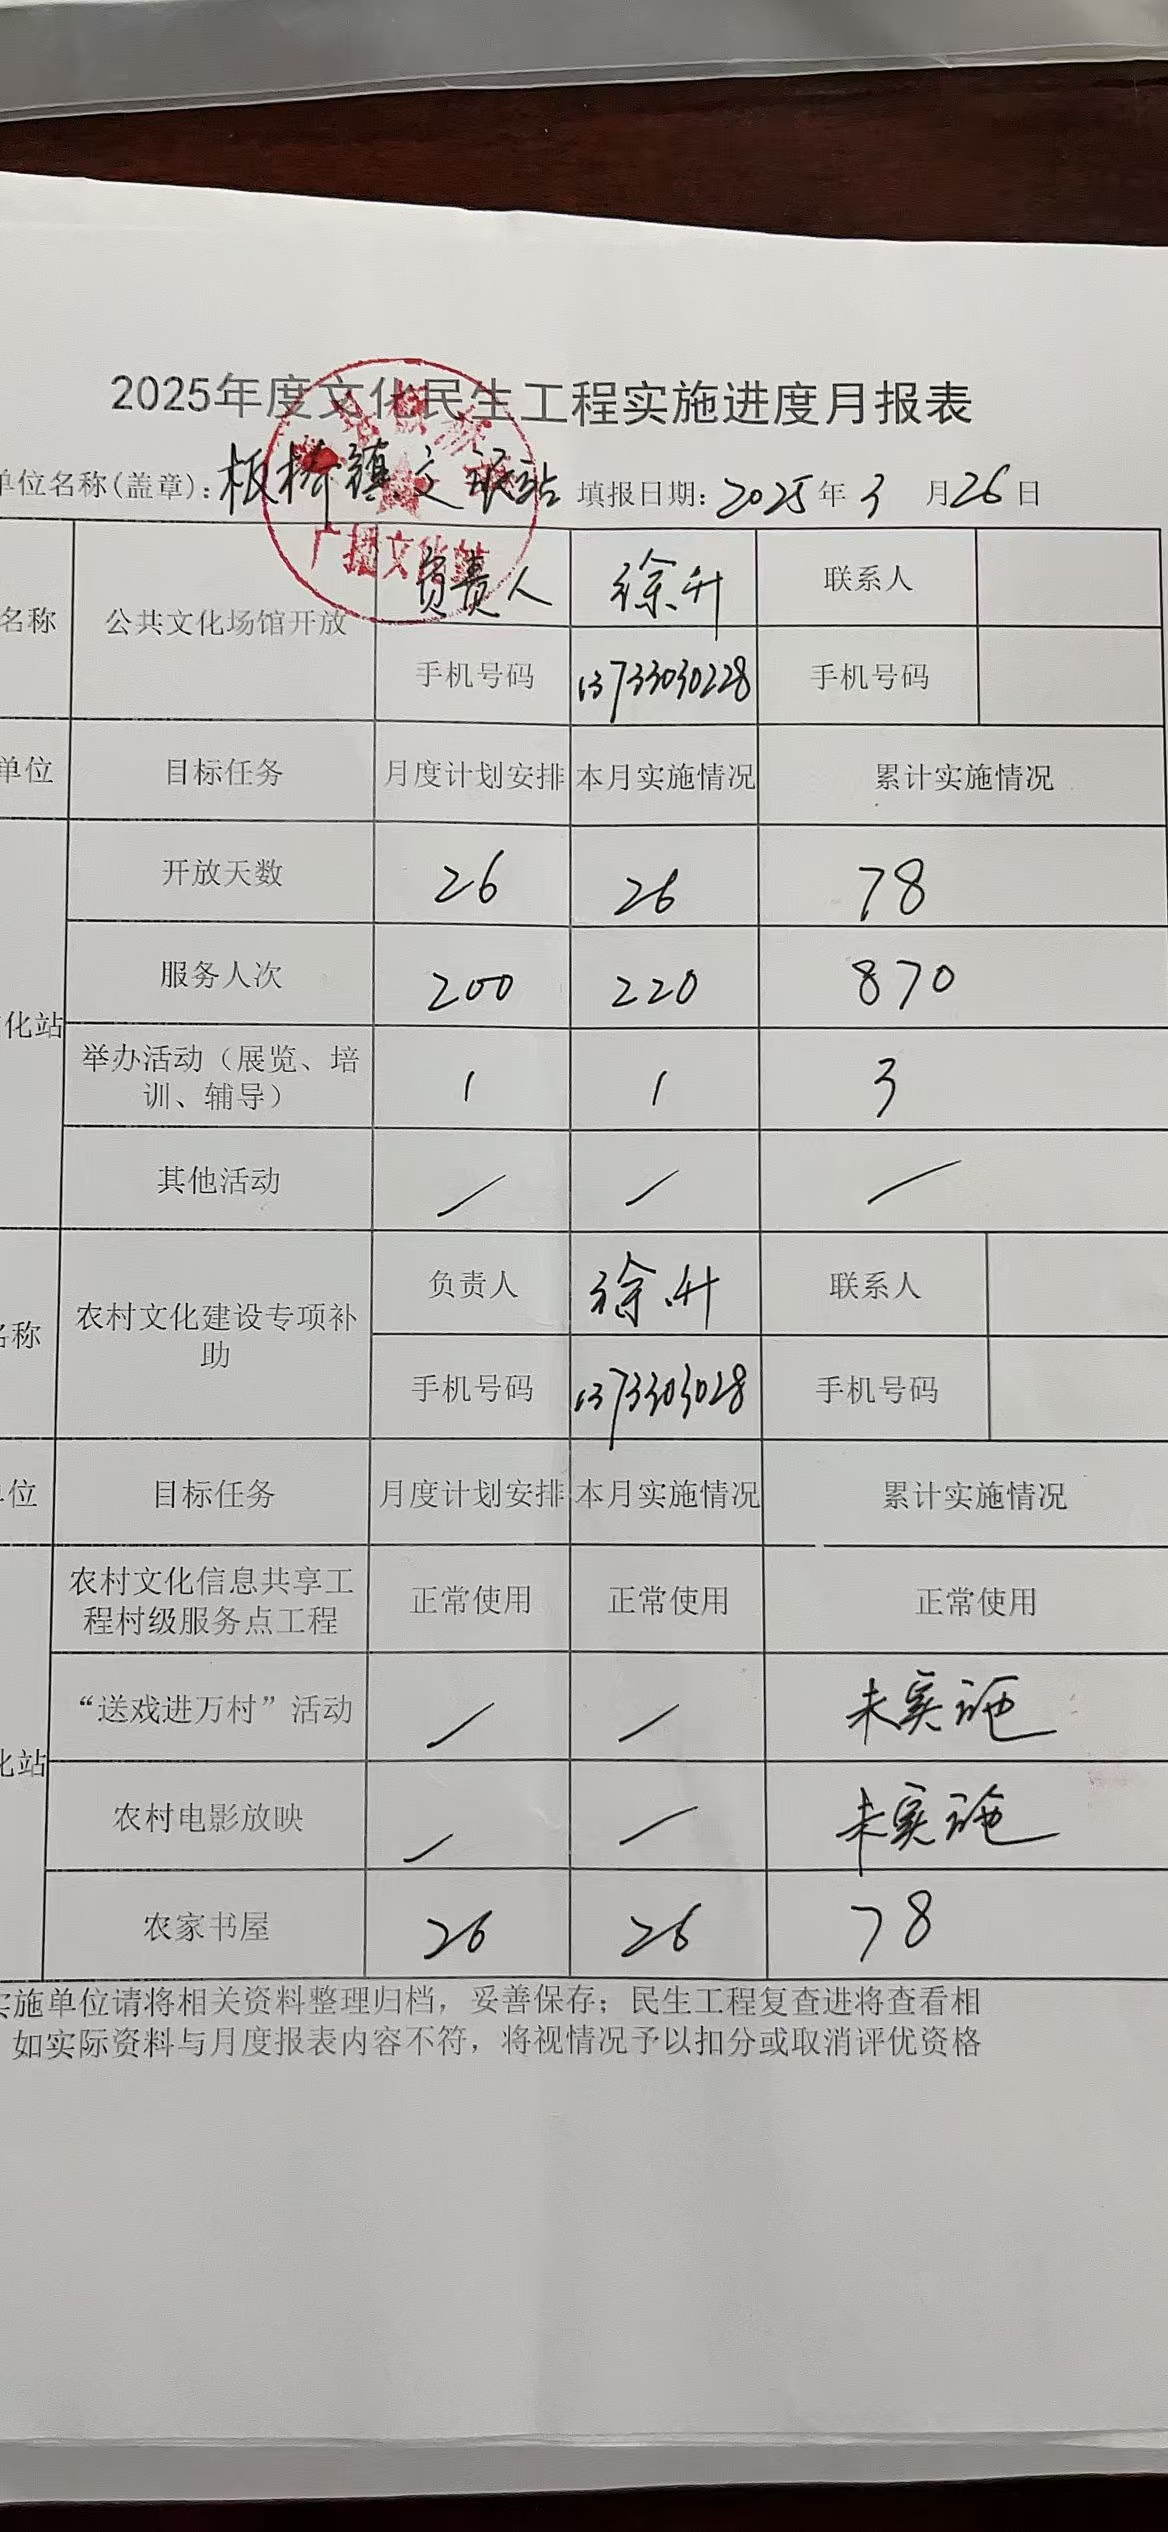 2025年度文化民生工程实施进度月报表
单位名称(盖章): 板桥镇文 站 填报日期: 2025年3月26日
广播文化站
名称 公共文化场馆开放 负责人 徐升 联系人
手机号码 13733030228 手机号码
单位 目标任务 月度计划安排 本月实施情况 累计实施情况
开放天数 26 26 78
服务人次 200 220 870
化站
举办活动（展览、培
训、辅导） 1 1 3
其他活动 / / /
名称 农村文化建设专项补
助 负责人 徐升 联系人
手机号码 1373303028 手机号码
单位 目标任务 月度计划安排 本月实施情况 累计实施情况
农村文化信息共享工
程村级服务点工程 正常使用 正常使用 正常使用
“送戏进万村”活动 / / 未实施
化站
农村电影放映 / / 未实施
农家书屋 26 26 78
实施单位请将相关资料整理归档，妥善保存；民生工程复查进将查看相
如实际资料与月度报表内容不符，将视情况予以扣分或取消评优资格